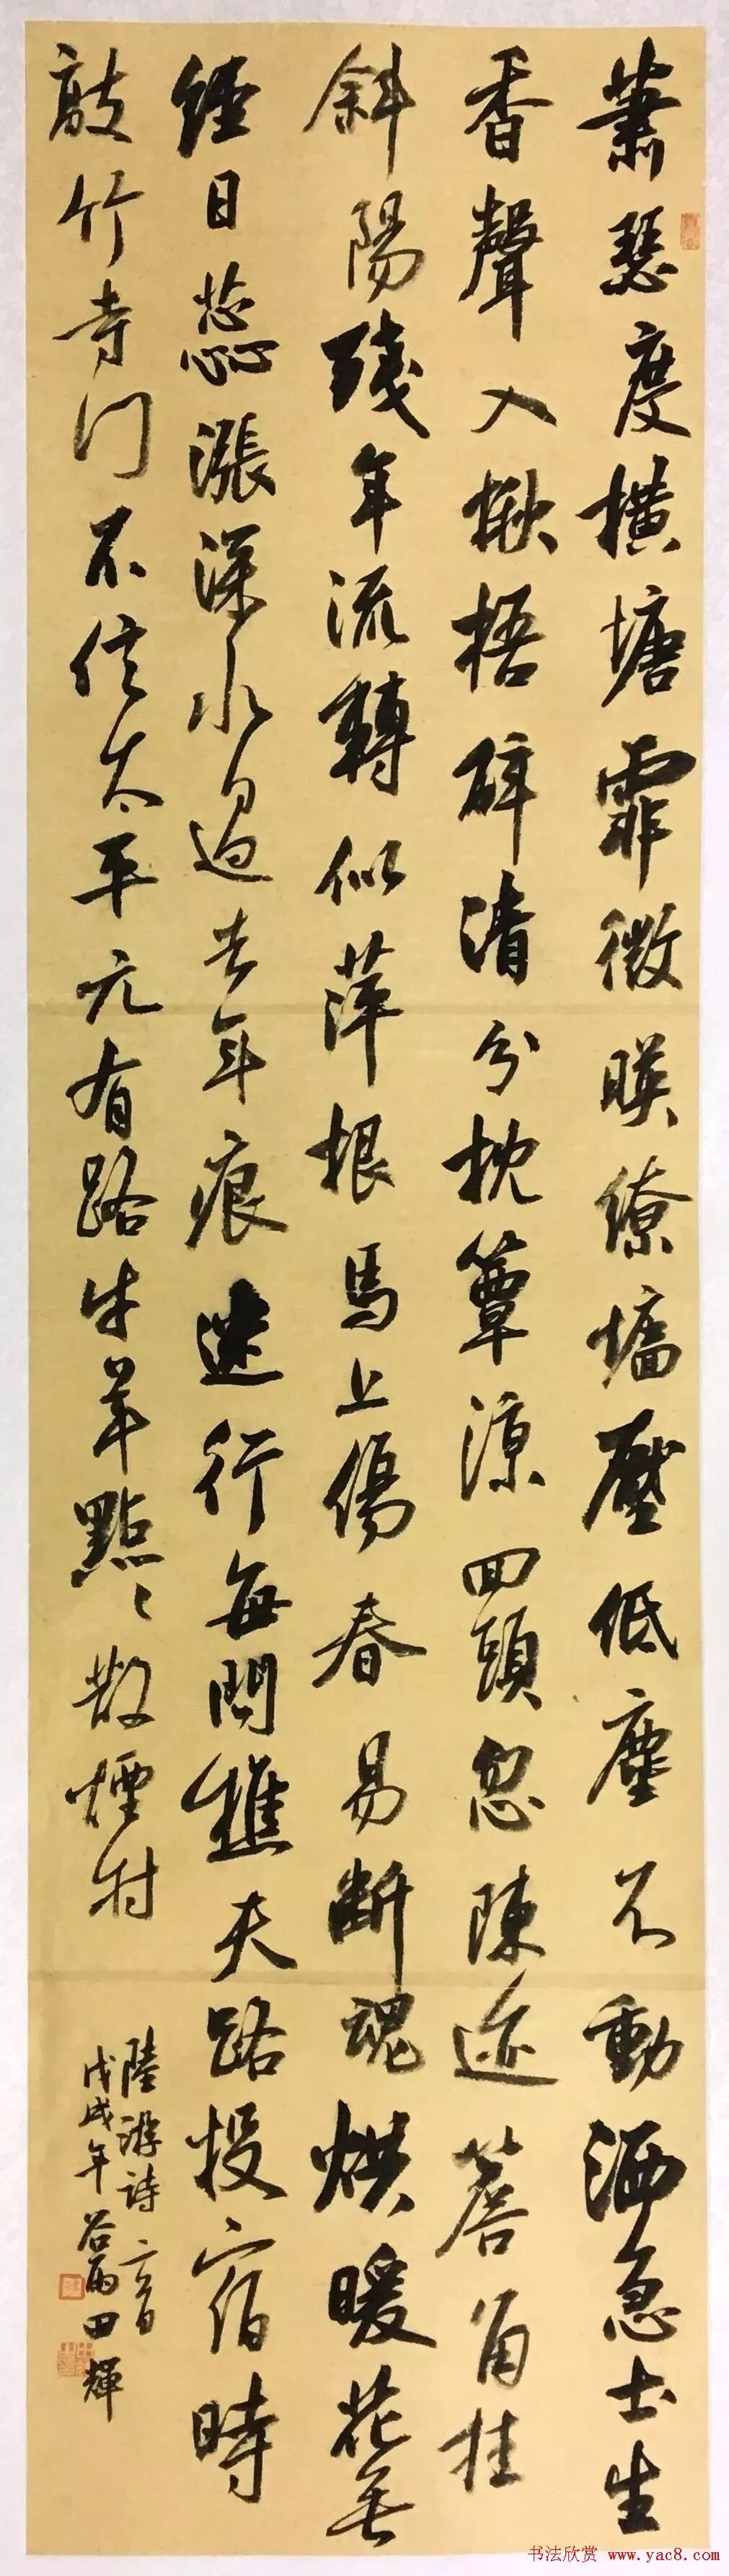 蕭瑟度橫塘霏微映繚墻壓低塵不動洒急土生
香聲入楸梧碎清分枕簟涼回頭忽陳迹簷角挂
斜陽殘年流轉似萍根馬上傷春易斷魂烘暖花無
經日蕊漲深水過去年痕迷行每問樵夫路投宿時
敲竹寺門不信太平元有路牛羊點〻散煙村
陸游詩二首
戊戌年谷雨田輝
书法欣赏 www.yac8.com